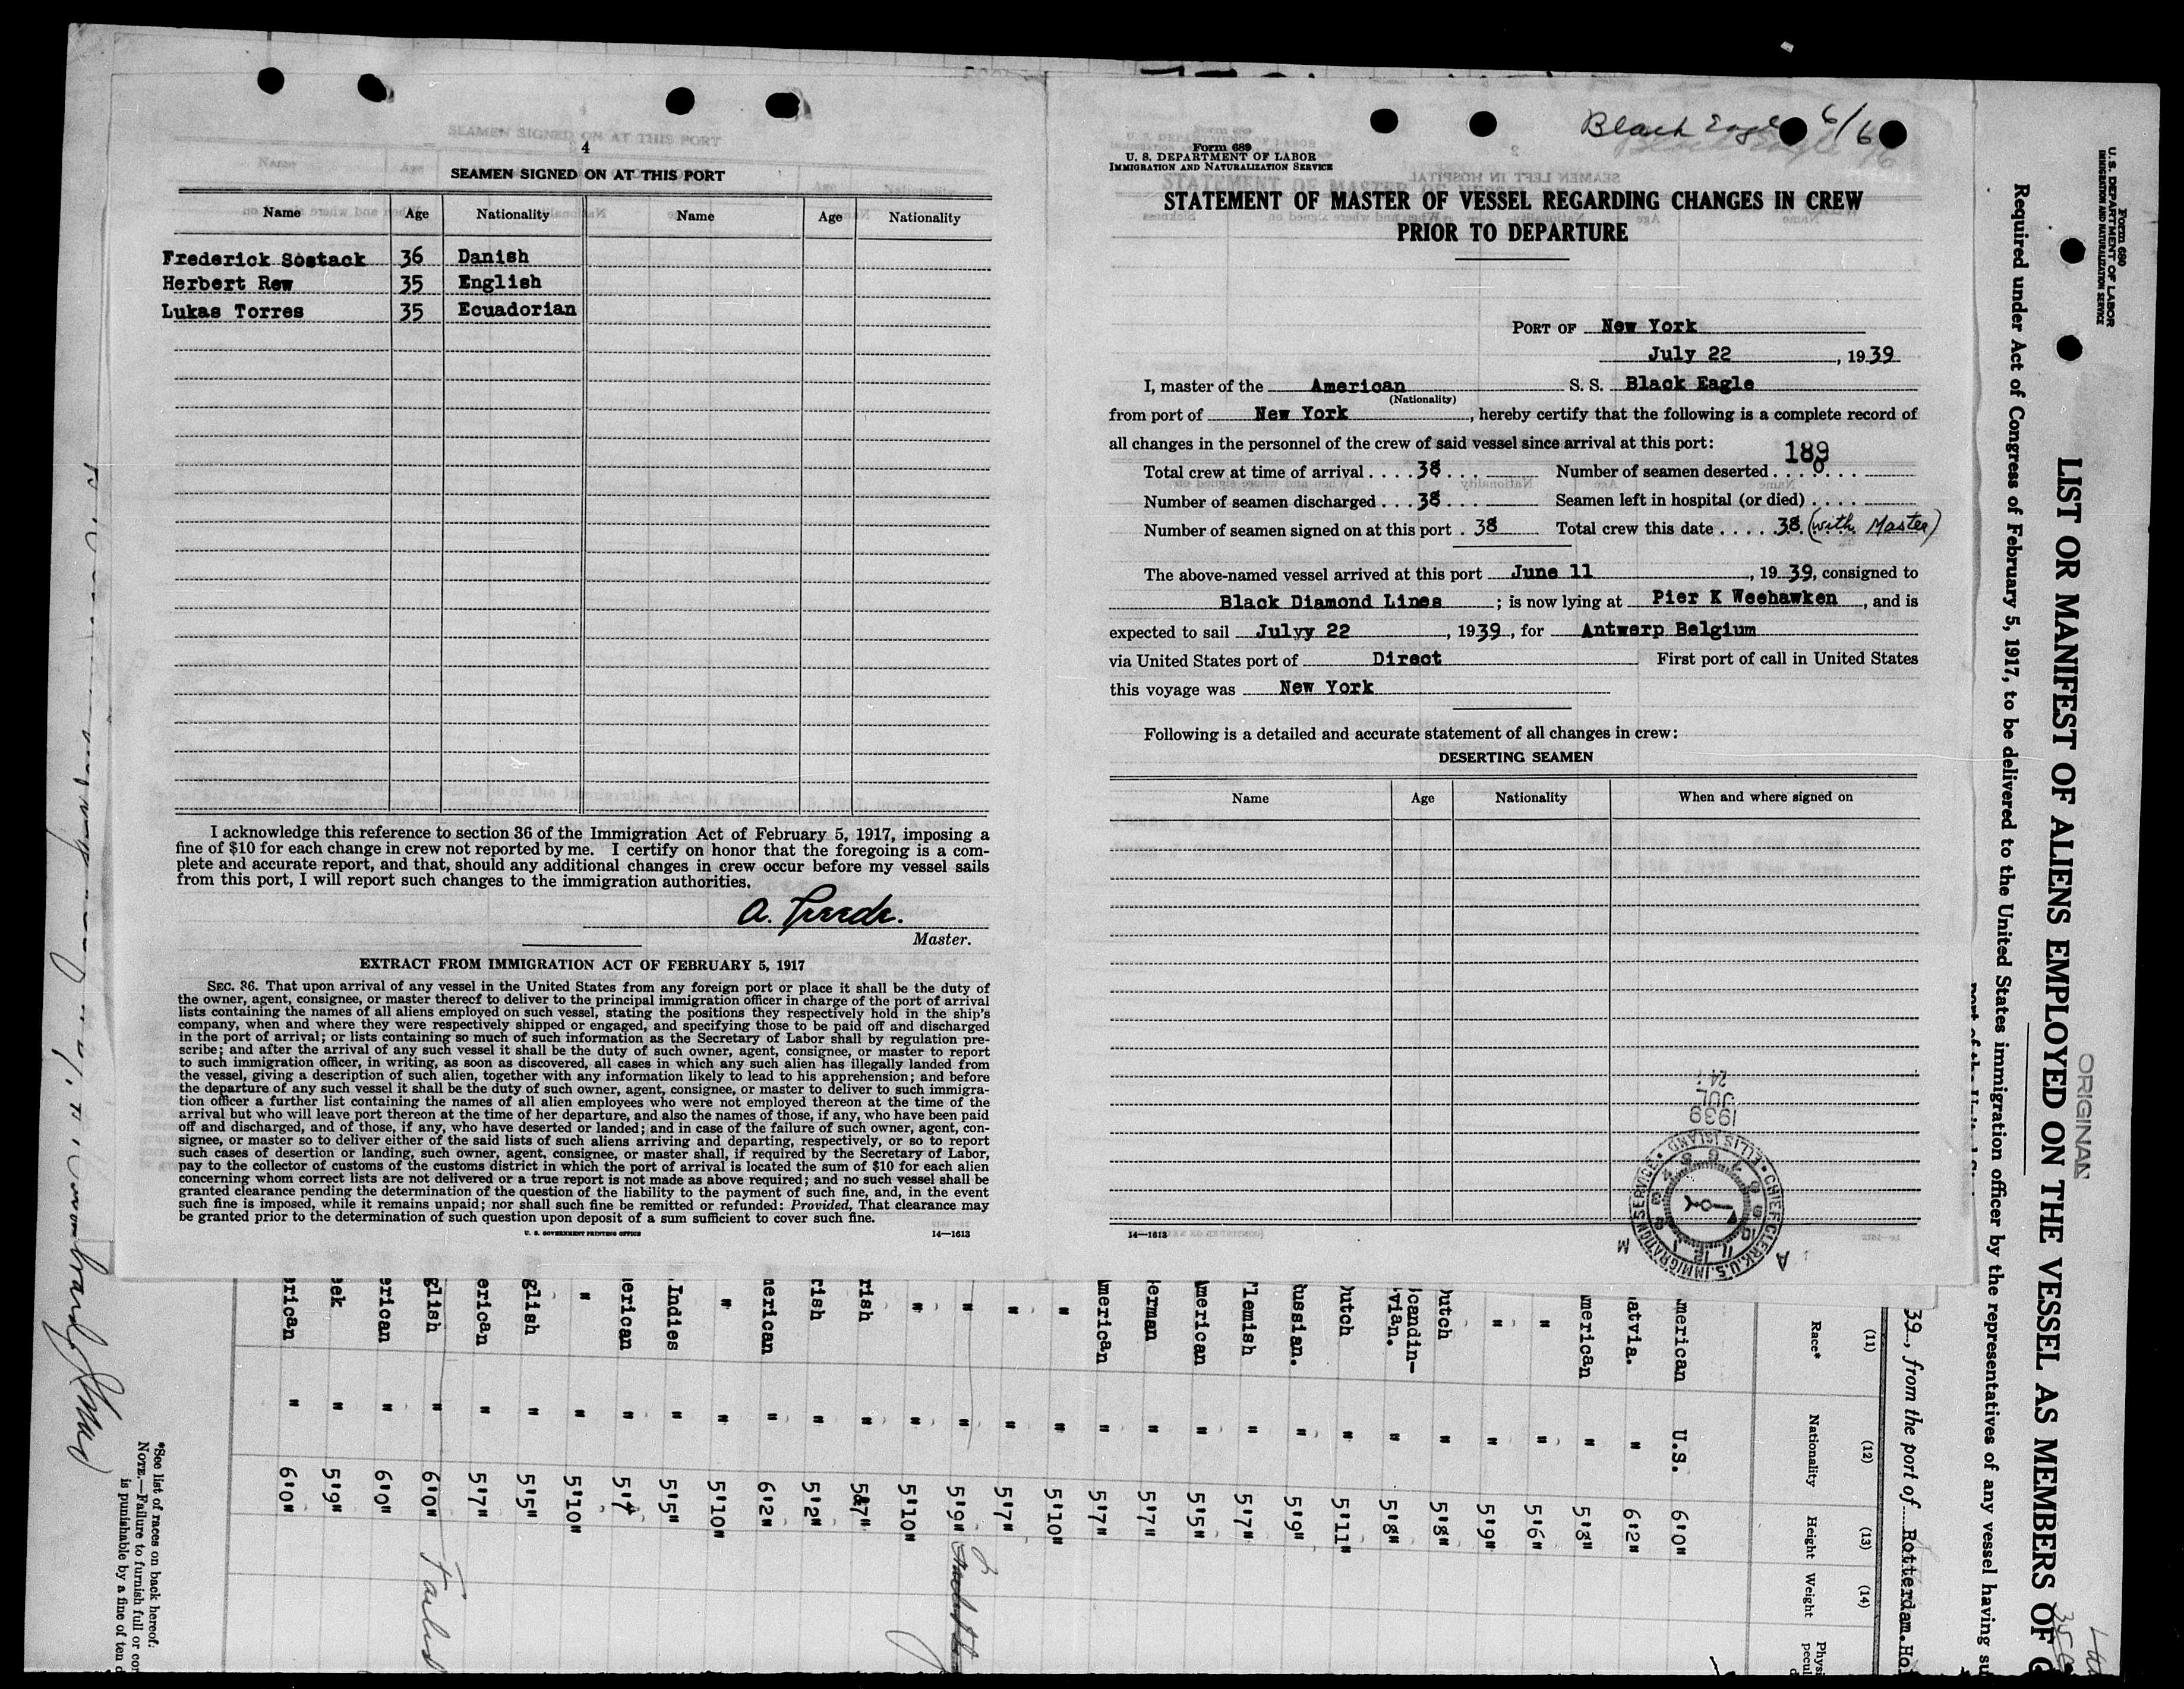 4
SEAMEN SIGNED ON AT THIS PORT
Name Age Nationality Name Age Nationality
Frederick Sostack 36 Danish
Herbert Rew 35 English
Lukas Torres 35 Ecuadorian
I acknowledge this reference to section 36 of the Immigration Act of February 5, 1917, imposing a
fine of $10 for each change in crew not reported by me. I certify on honor that the foregoing is a com-
plete and accurate report, and that, should any additional changes in crew occur before my vessel sails
from this port, I will report such changes to the immigration authorities.
A.
Master.
EXTRACT FROM IMMIGRATION ACT OF FEBRUARY 5, 1917
SEC. 36. That upon arrival of any vessel in the United States from any foreign port or place it shall be the duty of
the owner, agent, consignee, or master thereof to deliver to the principal immigration officer in charge of the port of arrival
lists containing the names of all aliens employed on such vessel, stating the positions they respectively hold in the ship's
company, when and where they were respectively shipped or engaged, and specifying those to be paid off and discharged
in the port of arrival; or lists containing so much of such information as the Secretary of Labor shall by regulation pre-
scribe; and after the arrival of any such vessel it shall be the duty of such owner, agent, consignee, or master to report
to such immigration officer, in writing, as soon as discovered, all cases in which any such alien has illegally landed from
the vessel, giving a description of such alien, together with any information likely to lead to his apprehension; and before
the departure of any such vessel it shall be the duty of such owner, agent, consignee, or master to deliver to such immigra-
tion officer a further list containing the names of all alien employees who were not employed thereon at the time of the
arrival but who will leave port thereon at the time of her departure, and also the names of those, if any, who have been paid
off and discharged, and of those, if any, who have deserted or landed; and in case of the failure of such owner, agent, con-
signee, or master so to deliver either of the said lists of such aliens arriving and departing, respectively, or so to report
such cases of desertion or landing, such owner, agent, consignee, or master shall, if required by the Secretary of Labor,
pay to the collector of customs of the customs district in which the port of arrival is located the sum of $10 for each alien
concerning whom correct lists are not delivered or a true report is not made as above required; and no such vessel shall be
granted clearance pending the determination of the question of the liability to the payment of such fine, and, in the event
such fine is imposed, while it remains unpaid; nor shall such fine be remitted or refunded: Provided, That clearance may
be granted prior to the determination of such question upon deposit of a sum sufficient to cover such fine.
U. S. GOVERNMENT PRINTING OFFICE 14—1613
Black Eagle 6/6
Form 689
U. S. DEPARTMENT OF LABOR
IMMIGRATION AND NATURALIZATION SERVICE
STATEMENT OF MASTER OF VESSEL REGARDING CHANGES IN CREW
PRIOR TO DEPARTURE
PORT OF New York
July 22, 1939
I, master of the American S. S. Black Eagle
(Nationality)
from port of New York, hereby certify that the following is a complete record of
all changes in the personnel of the crew of said vessel since arrival at this port:
189
Total crew at time of arrival .... 38 ... Number of seamen deserted .... 0 ....
Number of seamen discharged ... 38 ... Seamen left in hospital (or died) ....
Number of seamen signed on at this port . 38 Total crew this date ..... 38. (with Master)
The above-named vessel arrived at this port June 11, 1939, consigned to
Black Diamond Lines; is now lying at Pier K Weehawken, and is
expected to sail Julyy 22, 1939, for Antwerp Belgium
via United States port of Direct First port of call in United States
this voyage was New York
Following is a detailed and accurate statement of all changes in crew:
DESERTING SEAMEN
Name Age Nationality When and where signed on
24
JUL
1939
CHIEF CLERK, U.S. IMMIGRATION SERVICE • ELLIS ISLAND •
A M
14—1613
Form 680
U. S. DEPARTMENT OF LABOR
IMMIGRATION AND NATURALIZATION SERVICE
ORIGINAL
LIST OR MANIFEST OF ALIENS EMPLOYED ON THE VESSEL AS MEMBERS OF C
Required under Act of Congress of February 5, 1917, to be delivered to the United States immigration officer by the representatives of any vessel having su
39, from the port of Rotterdam.Hol
(11) (12) (13) (14)
Race* Nationality Height Weight Physi
pecul
merican U.S. 6'0"
atvia. " 6'2"
merican " 5'8"
" " 5'6"
" " 5'9"
utch " 5'8"
candin-
vian. " 5'8"
utch " 5'11"
ussian. " 5'9"
lemish " 5'7"
merican " 5'5"
erman " 5'7"
merican " 5'7"
" " 5'10"
" " 5'7"
" " 5'9"
" " 5'10"
rish " 5'7"
rish " 5'2"
merican " 6'2"
" " 5'10"
.Indies " 5'5"
erican " 5'7"
" " 5'10"
glish " 5'5"
erican " 5'7"
glish " 6'0" Failed
erican " 6'0"
eek " 5'9"
erican " 6'0"
*See list of races on back hereof:
NOTE.—Failure to furnish full or cor
is punishable by a fine of ten d